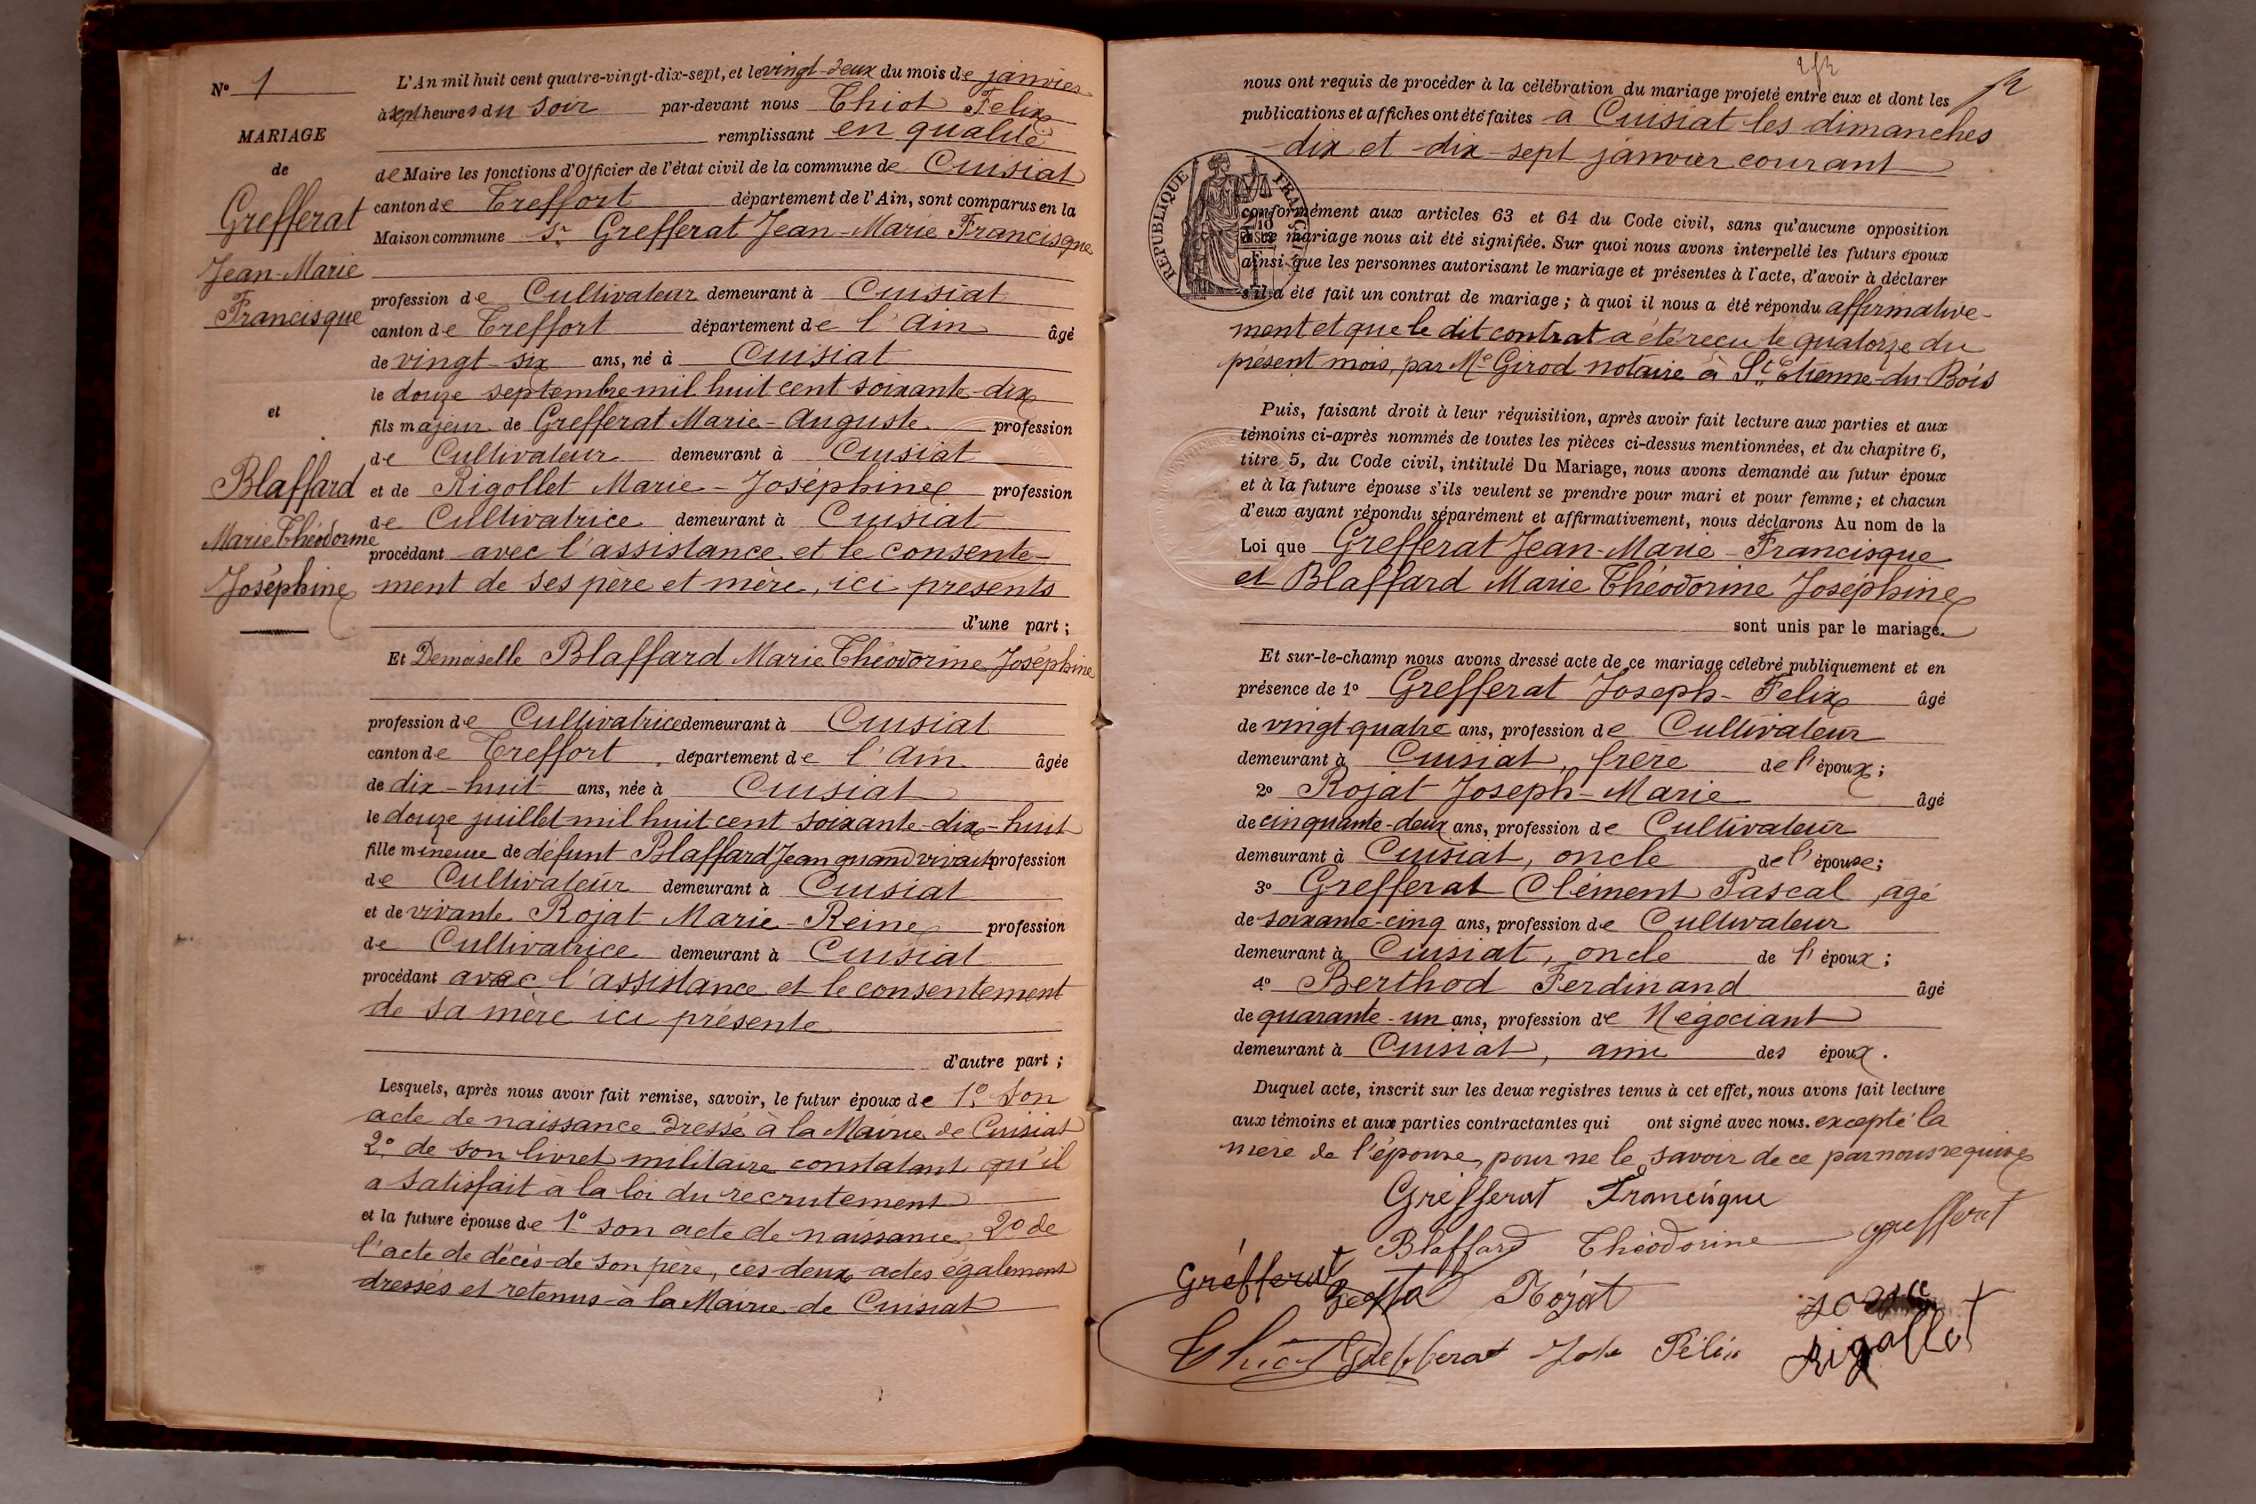 Nº 1
MARIAGE
de
Grefferat
Jean-Marie
Francisque
et
Blaffard
Marie Théodorine
Joséphine
L'An mil huit cent quatre-vingt-dix-sept, et le vingt-deux du mois de janvier
à sept heures du soir par-devant nous Thiot Felix
remplissant en qualité
de Maire les fonctions d'Officier de l'état civil de la commune de Cuisiat
canton de Treffort département de l'Ain, sont comparus en la
Maison commune Sr Grefferat Jean-Marie Francisque
profession de Cultivateur demeurant à Cuisiat
canton de Treffort département de l'Ain âgé
de vingt-six ans, né à Cuisiat
le douze septembre mil huit cent soixante-dix
fils majeur de Grefferat Marie-Auguste profession
de Cultivateur demeurant à Cuisiat
et de Rigollet Marie-Joséphine profession
de Cultivatrice demeurant à Cuisiat
procédant avec l'assistance et le consente-
ment de ses père et mère, ici présents
d'une part ;
Et Demoiselle Blaffard Marie Théodorine Joséphine
profession de Cultivatrice demeurant à Cuisiat
canton de Treffort, département de l'Ain âgée
de dix-huit ans, née à Cuisiat
le douze juillet mil huit cent soixante-dix-huit
fille mineure de défunt Blaffard Jean quand vivait profession
de Cultivateur demeurant à Cuisiat
et de vivante Rojat Marie-Reine profession
de Cultivatrice demeurant à Cuisiat
procédant avec l'assistance et le consentement
de sa mère ici présente
d'autre part ;
Lesquels, après nous avoir fait remise, savoir, le futur époux de 1º Son
acte de naissance dressé à la Mairie de Cuisiat
2º de son livret militaire constatant qu'il
a satisfait a la loi du recrutement
et la future épouse de 1º son acte de naissance 2º de
l'acte de décès de son père, ces deux actes également
dressés et retenus à la Mairie de Cuisiat
nous ont requis de procéder à la célébration du mariage projeté entre eux et dont les
publications et affiches ont été faites à Cuisiat les dimanches
dix et dix-sept janvier courant
RÉPUBLIQUE FRANÇAISE
conformément aux articles 63 et 64 du Code civil, sans qu'aucune opposition
à ce mariage nous ait été signifiée. Sur quoi nous avons interpellé les futurs époux
ainsi que les personnes autorisant le mariage et présentes à l'acte, d'avoir à déclarer
s'il a été fait un contrat de mariage ; à quoi il nous a été répondu affirmative-
ment et que le dit contrat a été reçu le quatorze du
présent mois, par Me Girod notaire à St Etienne-du-Bois
Puis, faisant droit à leur réquisition, après avoir fait lecture aux parties et aux
témoins ci-après nommés de toutes les pièces ci-dessus mentionnées, et du chapitre 6,
titre 5, du Code civil, intitulé Du Mariage, nous avons demandé au futur époux
et à la future épouse s'ils veulent se prendre pour mari et pour femme ; et chacun
d'eux ayant répondu séparément et affirmativement, nous déclarons Au nom de la
Loi que Grefferat Jean-Marie-Francisque
et Blaffard Marie Théodorine Joséphine
sont unis par le mariage.
Et sur-le-champ nous avons dressé acte de ce mariage célébré publiquement et en
présence de 1º Grefferat Joseph-Felix âgé
de vingt quatre ans, profession de Cultivateur
demeurant à Cuisiat, frère de l'époux ;
2º Rojat Joseph-Marie âgé
de cinquante-deux ans, profession de Cultivateur
demeurant à Cuisiat, oncle de l'épouse ;
3º Grefferat Clément Pascal, agé
de soixante-cinq ans, profession de Cultivateur
demeurant à Cuisiat, oncle de l'époux ;
4º Berthod Ferdinand âgé
de quarante-un ans, profession de Négociant
demeurant à Cuisiat, ami des époux.
Duquel acte, inscrit sur les deux registres tenus à cet effet, nous avons fait lecture
aux témoins et aux parties contractantes qui ont signé avec nous. excepté la
mère de l'épouse, pour ne le savoir de ce par nous requise
Grefferat Francisque
Blaffard Théodorine Grefferat
Grefferat Rojat
Thiot Grefferat Jph Félix Rigollet